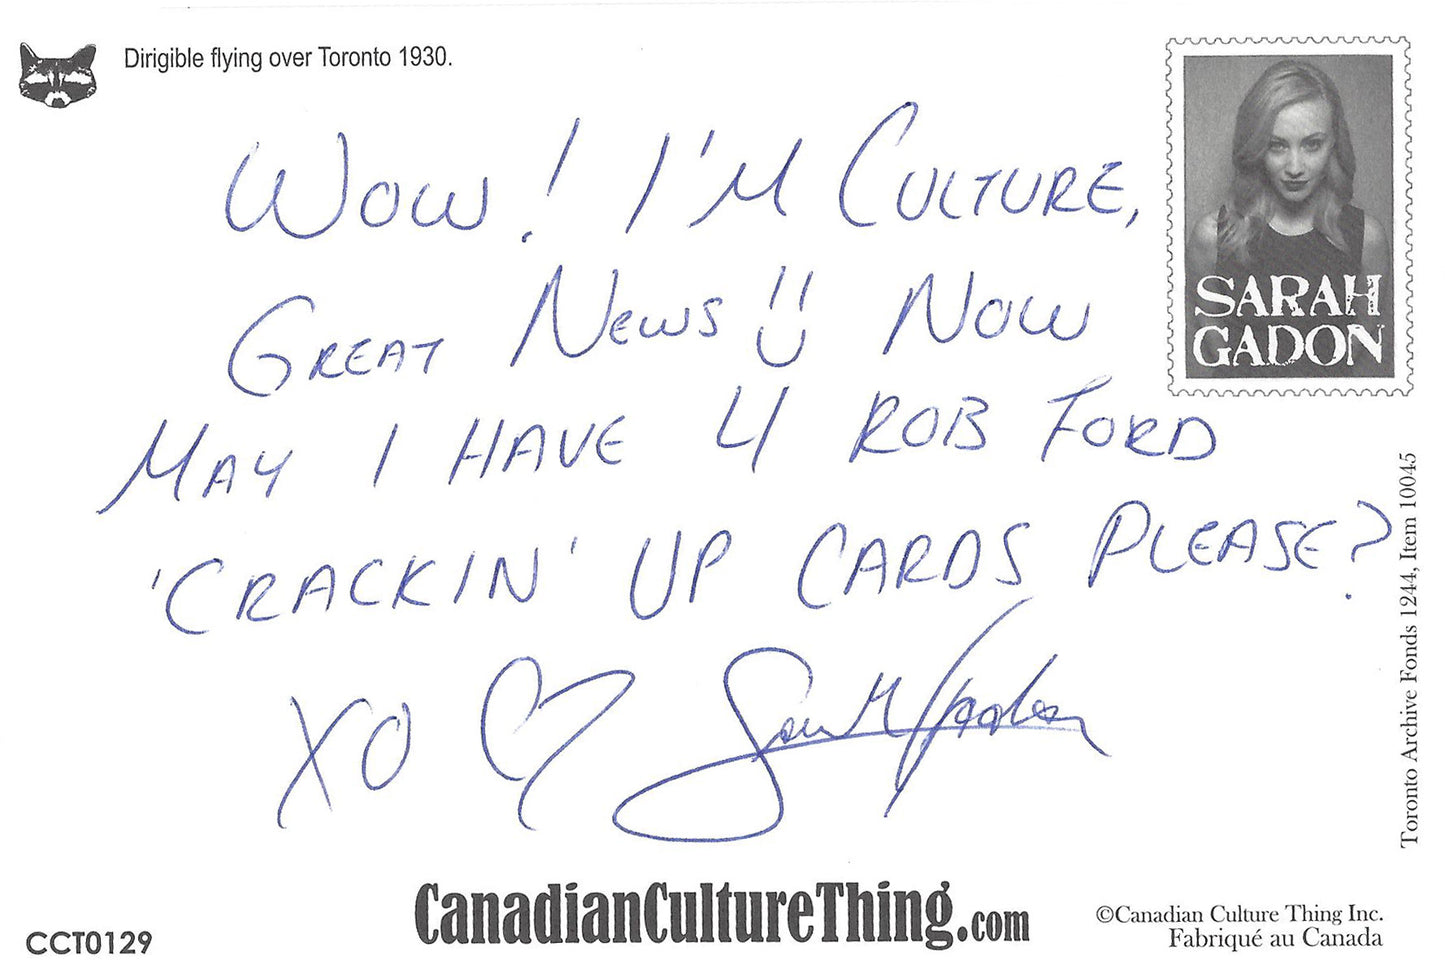 Dirigible flying over Toronto 1930.
WOW! I'M CULTURE,
GREAT NEWS!! NOW
MAY I HAVE 4 ROB FORD
'CRACKIN' UP CARDS PLEASE?
XO Sarah Gadon
SARAH
GADON
Toronto Archive Fonds 1244, Item 10045
CanadianCultureThing.com
CCT0129
©Canadian Culture Thing Inc.
Fabriqué au Canada